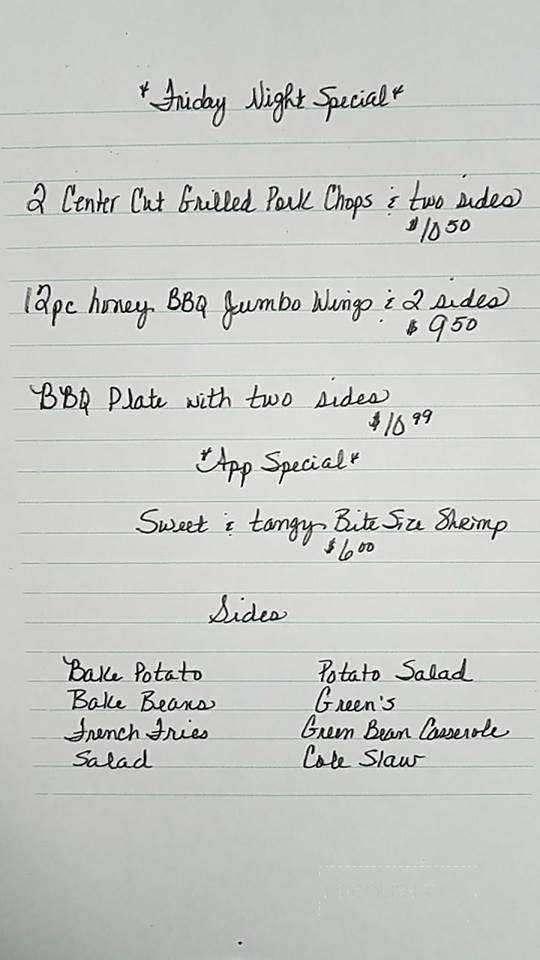 *Friday Night Special*
2 Center Cut Grilled Pork Chops & two sides
$10 50
12pc honey BBQ Jumbo Wings & 2 sides
$ 9 50
BBQ Plate with two sides
$10 99
*App Special*
Sweet & tangy Bite Size Shrimp
$6 00
Sides
Bake Potato Potato Salad
Bake Beans Green's
French Fries Green Bean Casserole
Salad Cole Slaw